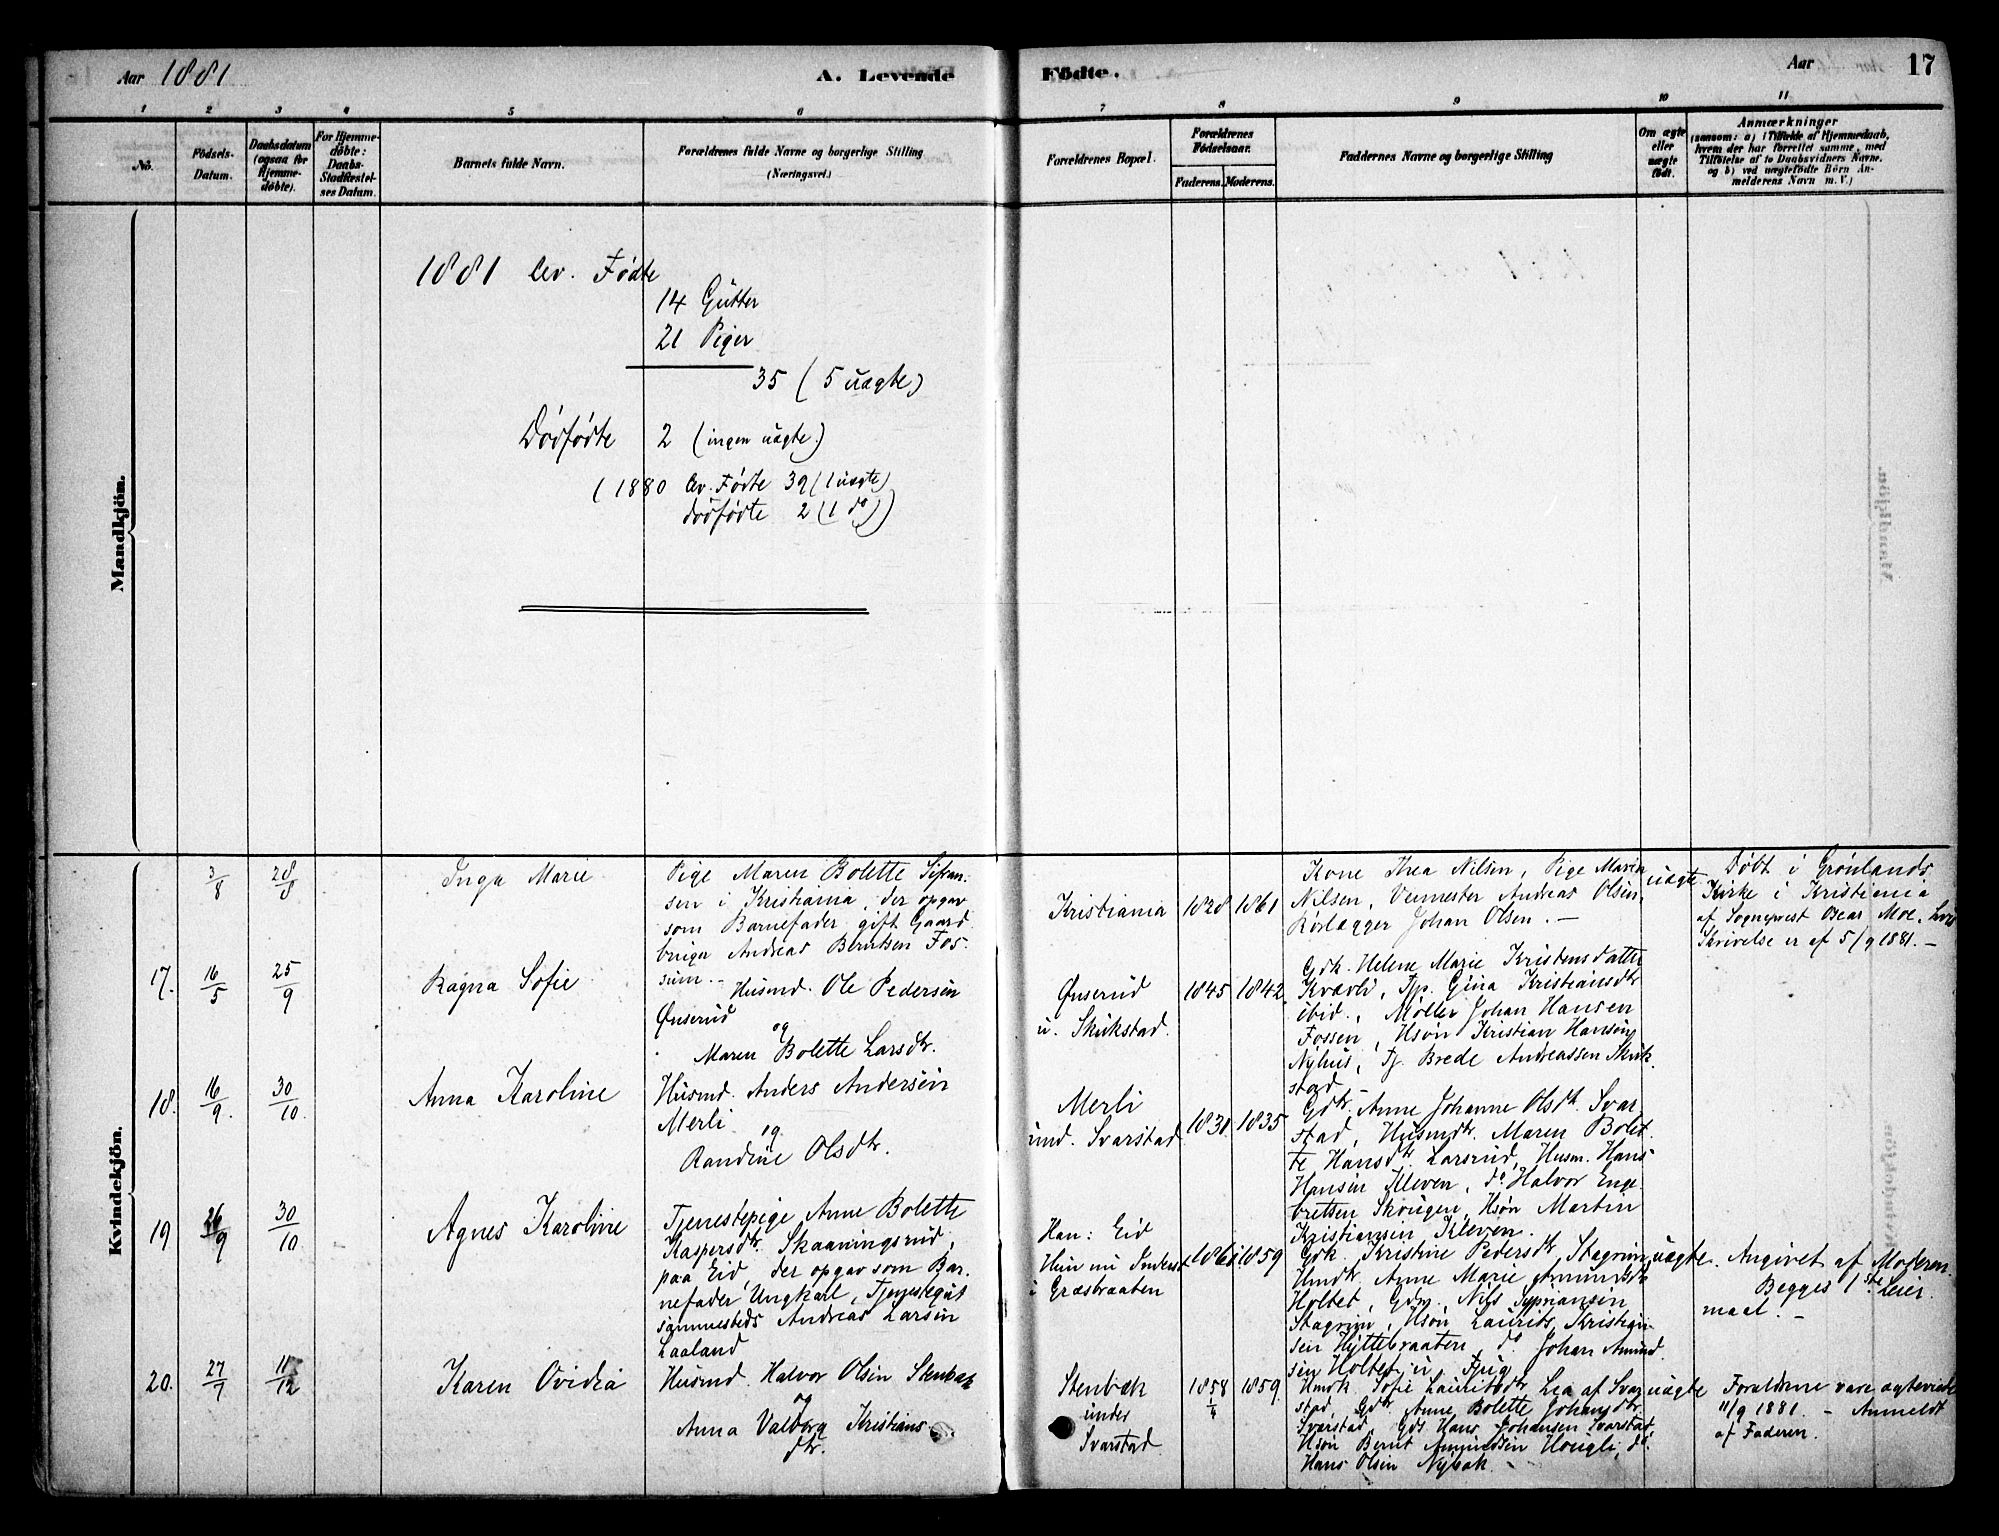 Aar 1881
A. Levende
Födte.
Aar
17
1 2 3 4 5 6 7 8 9 10 11
No.
Födsels-Datum.
Daabsdatum (ogsaa for Hjemme-döbte).
For Hjemme-döbte: Daabs-Stadfæstel-ses Datum.
Barnets fulde Navn.
Forældrenes fulde Navne og borgerlige Stilling
(Næringsvei.)
Forældrenes Bopæl.
Forældrenes Födselsaar.
Faderens. Moderens.
Faddernes Navne og borgerlige Stilling
Om ægte eller uægte födt.
Anmærkninger
(saasom: a) i Tilfælde af Hjemmedaab,
hvem der har forrettet samme, med
Tilföielse af to Daabsvidners Navne.
og b) ved uægtefödte Börn An-
melderens Navn m. V.)
Mandkjön.
1881 lev. Fødte
14 Gutter
21 Piger
35 (5 uægte)
Dødfødte 2 (ingen uægte.)
(1880 lev. Fødte 39 (1 uægte)
dødfødte 2 (1 do))
Kvindekjön.
3/8
28/8
Inga Marie
Pige Maren Bolette
sen i Kristiania, der opgav
som Barnefader gift Gaard
bruger Andreas Berntsen Fos
sum.
Kristiania
1828
1861
Kone Thea Nilsen, Pige Maria
Nilsen, Andreas Olsen,
Rørlægger Johan Olsen. —
uægte.
Døbt i Grønlands
Kirke i Kristiania
af Sogneprest Oscar Moe, hvis
Skrivelse er af 5/9 1881. —
17.
16/5
25/9
Ragna Sofie
Husmd. Ole Pedersen
Ønserud
og
Maren Bolette Larsdtr.
Ønserud
u. Skukstad.
1845
1842.
Gdk. Helene Marie Kristensdatter
Kvævli, Tjp. Gina Kristiansdtr
ibid., Møller Johan Hansen
Fossen, Hsøn Kristian Hansen
Nyhus, Tj. Brede Andreassen Skuk
stad —
18.
16/9.
30/10.
Anna Karoline
Husmd. Anders Andersen
Merli
og
Randine Olsdtr.
Merli
und. Svarstad.
1831
1835
Gdtr. Anne Johanne Olsdtr. Svar
stad, Husmdtr. Maren Bolet
te Hansdtr. Larsrud, Husm. Hans
Hansen Kleven, do Halvor Enge
bretsen Skougen, Hsøn Martin
Kristiansen Kleven.
19
26/9
30/10
Agnes Karoline
Tjenestepige Anne Bolette
Kaspersdtr. Skaaningsrud,
paa Eid, der opgav som Bar
nefader Ungkarl, Tjenestegut
sammesteds Andreas Larsen
Laaland
Han: Eid
Hun nu
i Græsbraaten
1861
1859
Gdk. Kristine Pedersdtr Stagrim,
Hmdtr. Anne Marie Amundsdtr
Holtet, Gdm. Nils Sypriansen
Stagrim, Hsøn Laurids Kristian
sen Hyttebraaten, do Johan Amund
sen Holtet u.
uægte.
Angivet af Moderen.
Begges 1ste Leier
maal. —
20.
27/7
11/12
Karen Ovidia
Husmd. Halvor Olsen Stenbæk
og
Anna Valborg Kristians
dtr.
Stenbæk
under
Svarstad.
1858
1/4
1859.
Hmdk. Sofie Lauritsdtr. Lea af Svar
stad, Gdtr. Anne Bolette Johansdtr.
Svarstad, Gds. Hans Johansen Svarstad,
Hsøn Bernt Amundsen Hougli, do.
Hans Olsen Nybæk.
uægte
Forældrene vare ægteviede
11/9 1881. — Anmeldt
af Faderen.